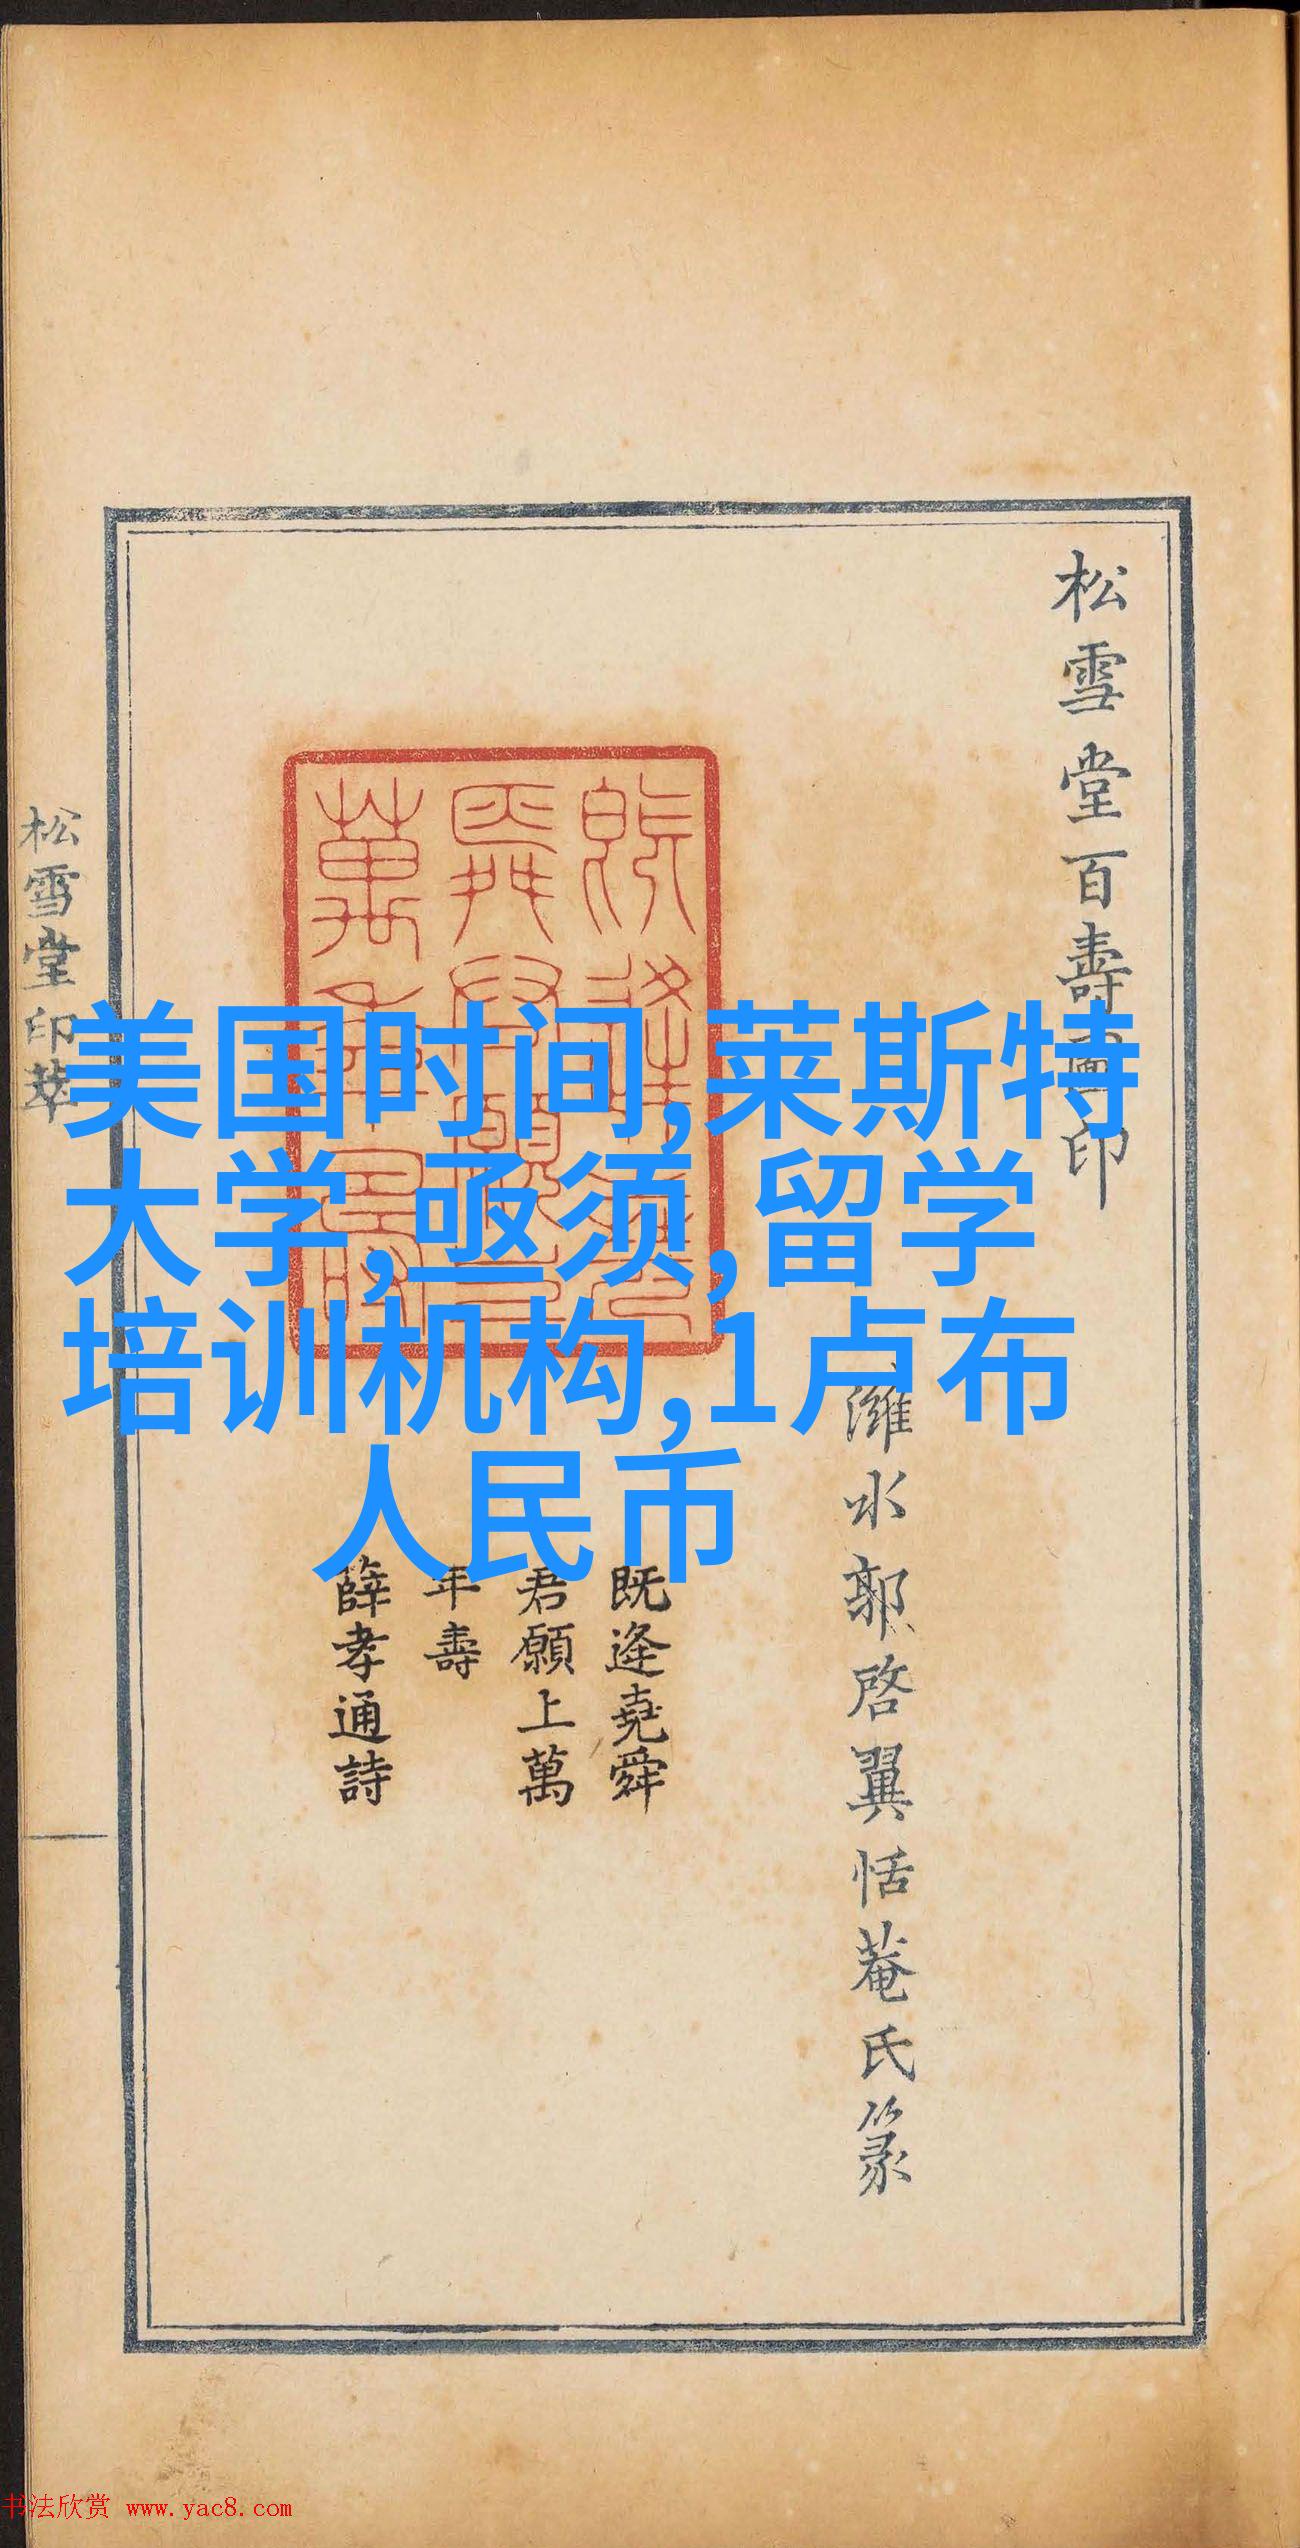 松雪堂百壽圖印
濰水郭啓翼恬菴氏篆
既逢堯舜
君願上萬
年壽
薛孝通詩
松雪堂印萃
美国时间,莱斯特
大学,亟须,留学
培训机构,1卢布
人民币
书法欣赏 www.yac8.com